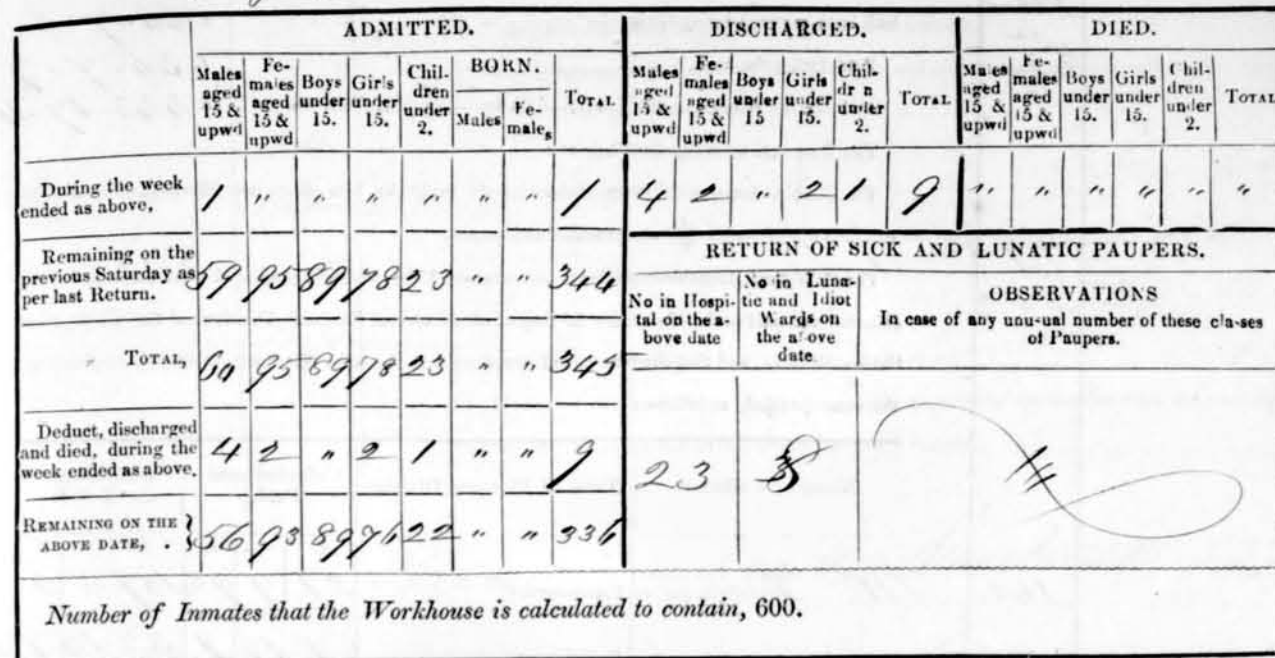 ADMITTED. DISCHARGED. DIED.
Males aged 15 & upwd Fe-males aged 15 & upwd Boys under 15. Girls under 15. Chil-dren under 2. BORN. Males Fe-males TOTAL Males aged 15 & upwd Fe-males aged 15 & upwd Boys under 15 Girls under 15. Chil-dr n under 2. TOTAL Males aged 15 & upwd Fe-males aged 15 & upwd Boys under 15. Girls under 15. Chil-dren under 2. TOTAL
During the week ended as above, 1 " " " " " " 1 4 2 " 2 1 9 " " " " " "
Remaining on the previous Saturday as per last Return. 59 95 89 78 23 " " 344
TOTAL, 60 95 89 78 23 " " 345
Deduct, discharged and died, during the week ended as above. 4 2 " 2 1 " " 9
REMAINING ON THE ABOVE DATE, . 56 93 89 76 22 " " 336
RETURN OF SICK AND LUNATIC PAUPERS.
No in Hospi-tal on the a-bove date No in Luna-tic and Idiot Wards on the above date. OBSERVATIONS
In case of any unu-ual number of these cla-ses of Paupers.
23
Number of Inmates that the Workhouse is calculated to contain, 600.